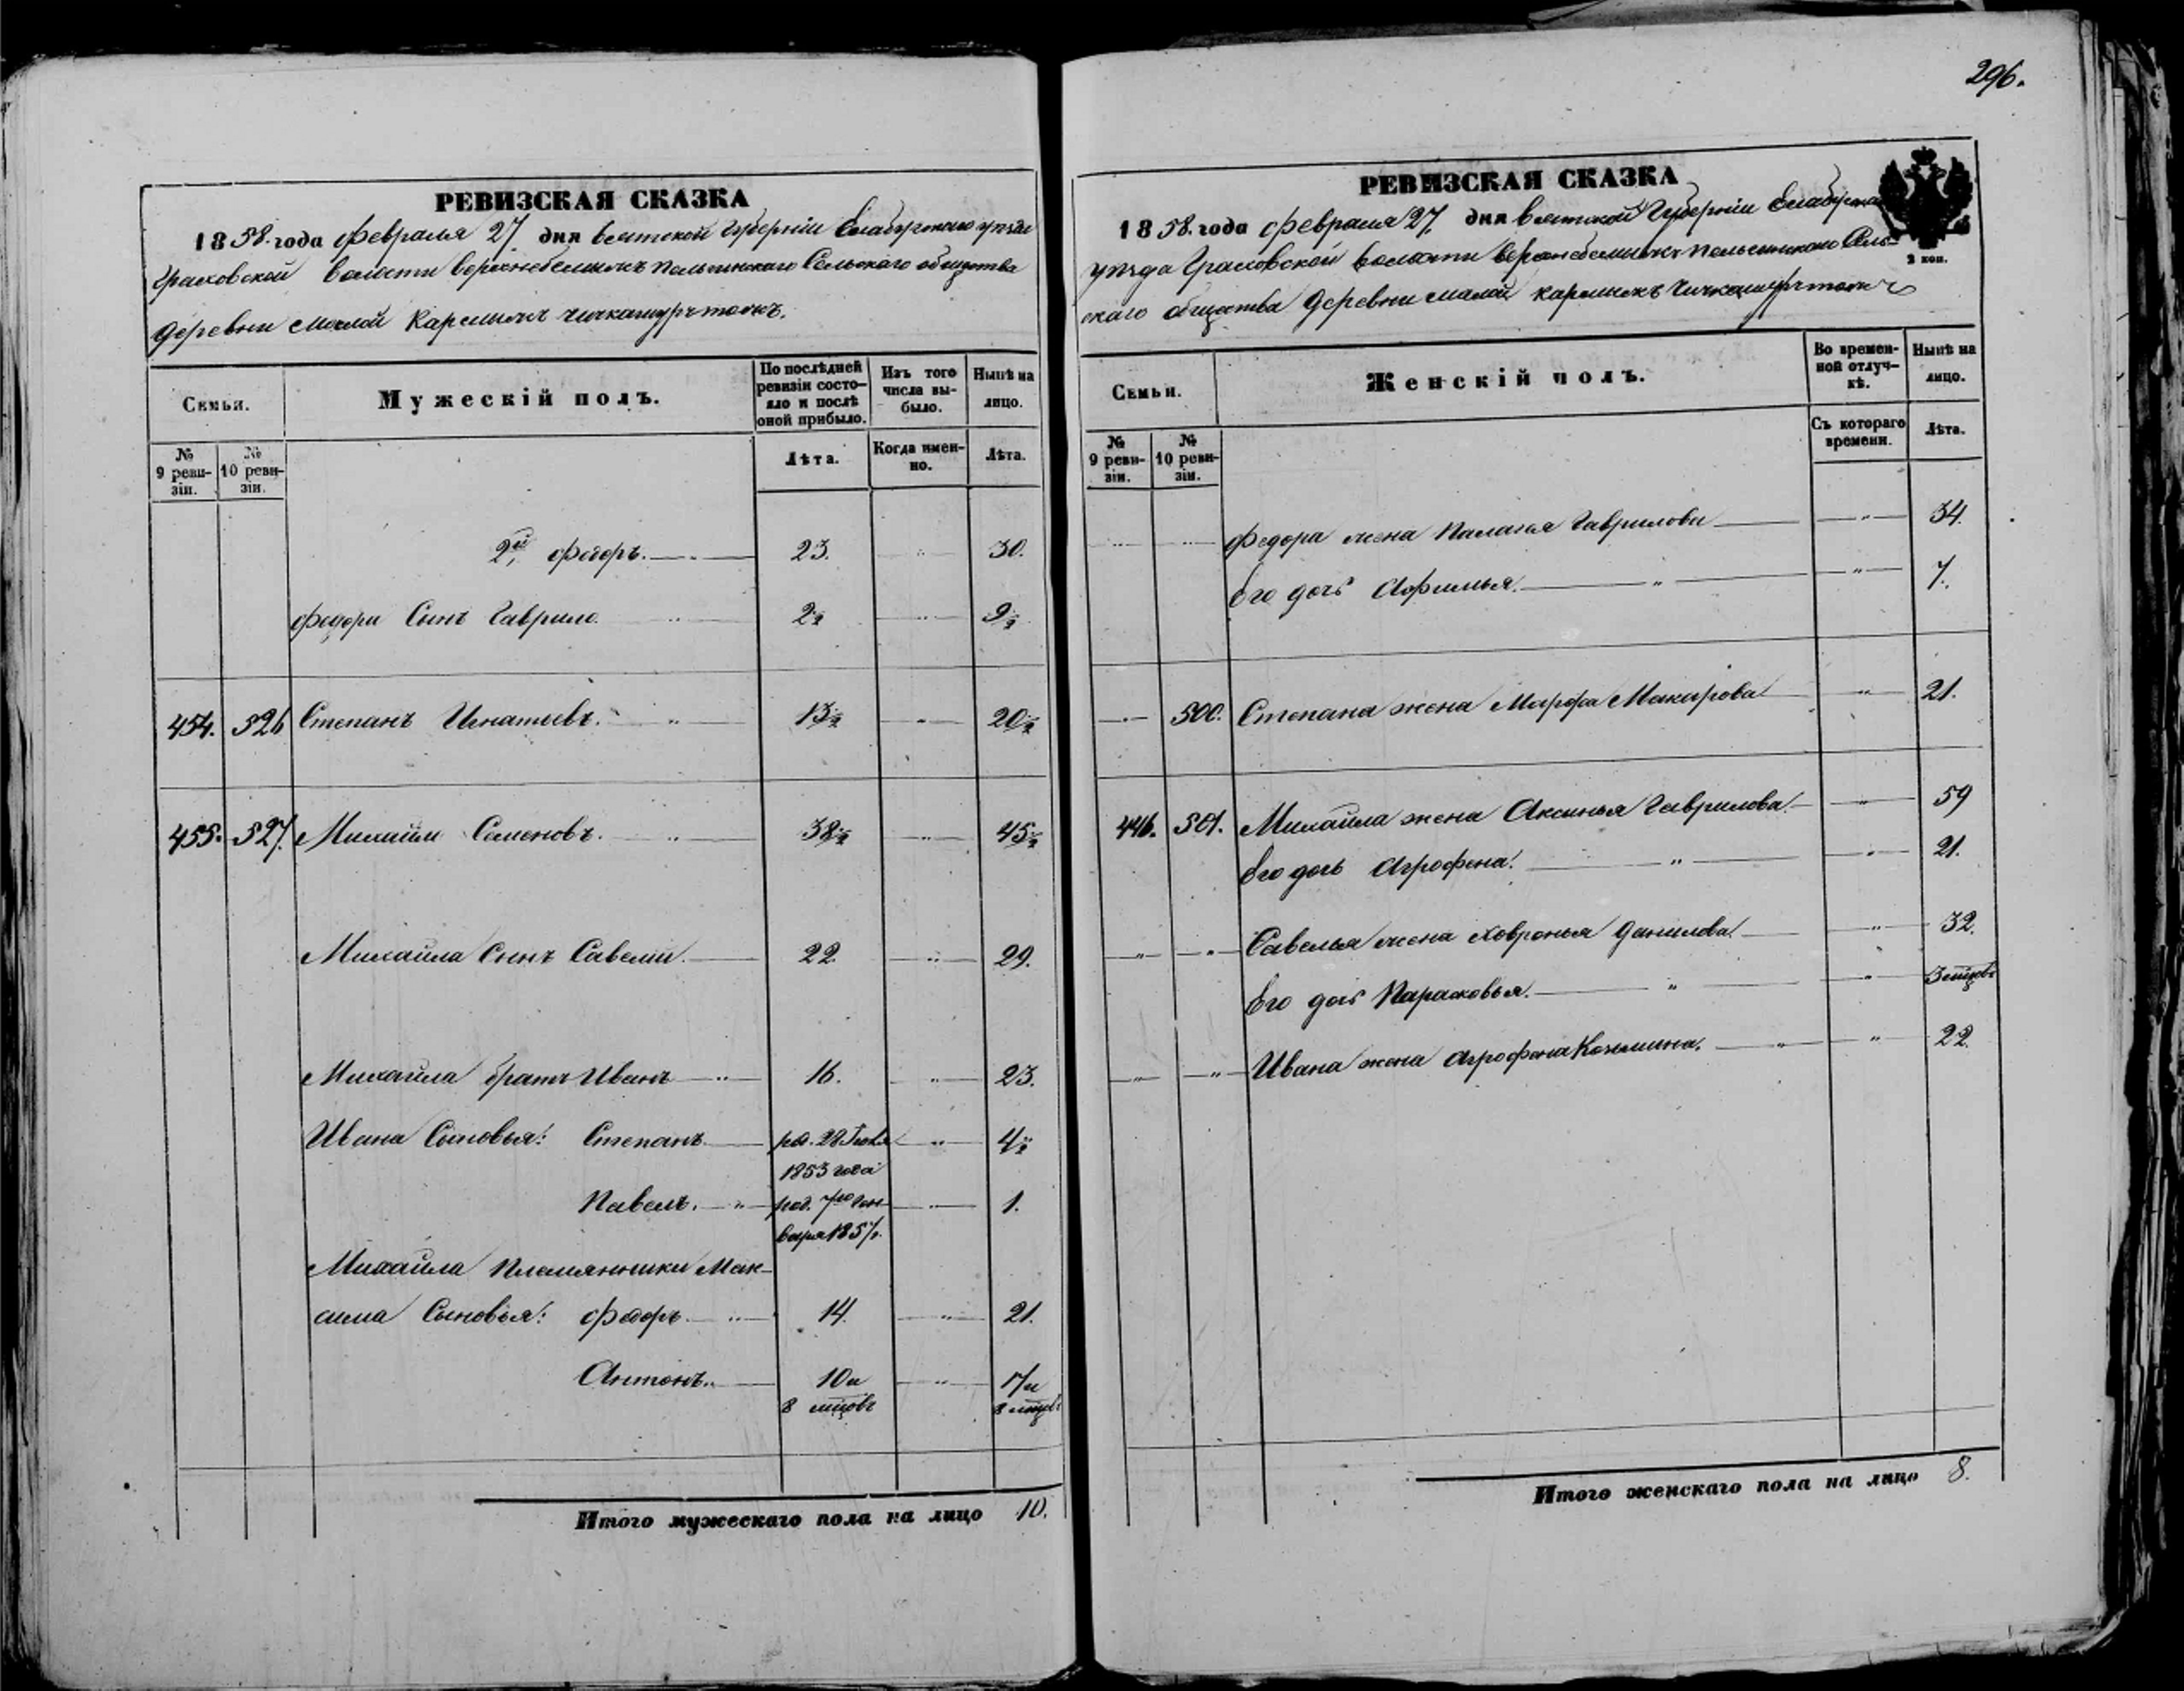 296.
РЕВИЗСКАЯ СКАЗКА
1858. года февраля 27 дня вятской губерніи Елабугскаго уѣзда
Граховской волости верхнебемышъ польинскаго Сельскаго общества
деревни малой Кармыжъ
Семьи.
Мужескій полъ.
По послѣдней ревизіи состояло и послѣ оной прибыло.
Изъ того числа выбыло.
Нынѣ на лицо.
№ 9 ревизіи.
№ 10 ревизіи.
Лѣта.
Когда именно.
Лѣта.
2й, Федоръ. 23. " 30.
Федора Сынъ Гаврило. " 2½ " 9½
454. 526 Степанъ Игнатьевъ. " 13½ " 20½
455. 527. Михайло Семеновъ. " 38½ " 45½
Михайла Сынъ Савелій. 22. " 29.
Михайла братъ Иванъ " 16. " 23.
Ивана Сыновья: Степанъ род. 28 " 4½
1853 года
Павелъ. " род. 7го Ген- " 1.
варя 1857.
Михайла племянники Мак-
сима Сыновья: Федоръ " 14. " 21.
Антонъ. 10 и " 17 и
8 мцовъ 8 мцовъ
Итого мужескаго пола на лицо 10.
РЕВИЗСКАЯ СКАЗКА
1858. года февраля 27, дня вятской Губерніи Елабугскаго
уѣзда Граховской волости верхнебемышъ Сель-
скаго общества деревни малой кармыжъ
2 коп.
Семьи.
Женскій полъ.
Во временной отлучкѣ.
Нынѣ на лицо.
№ 9 ревизіи.
№ 10 ревизіи.
Съ котораго времени.
Лѣта.
" " Федора жена Палагья Гаврилова " 34.
Его дочь Афимья. " " 7.
" 500. Степана жена Марфа Макарова " 21.
446. 501. Михайла жена Аксинья Гаврилова " 59
Его дочь Агрофена. " " 21.
" " Савелья жена Ховронья Данилова " 32.
Его дочь Парасковья. " " 3 мцовъ
" " Ивана жена Агрофена Козьмина. " " 22.
Итого женскаго пола на лицо 8.